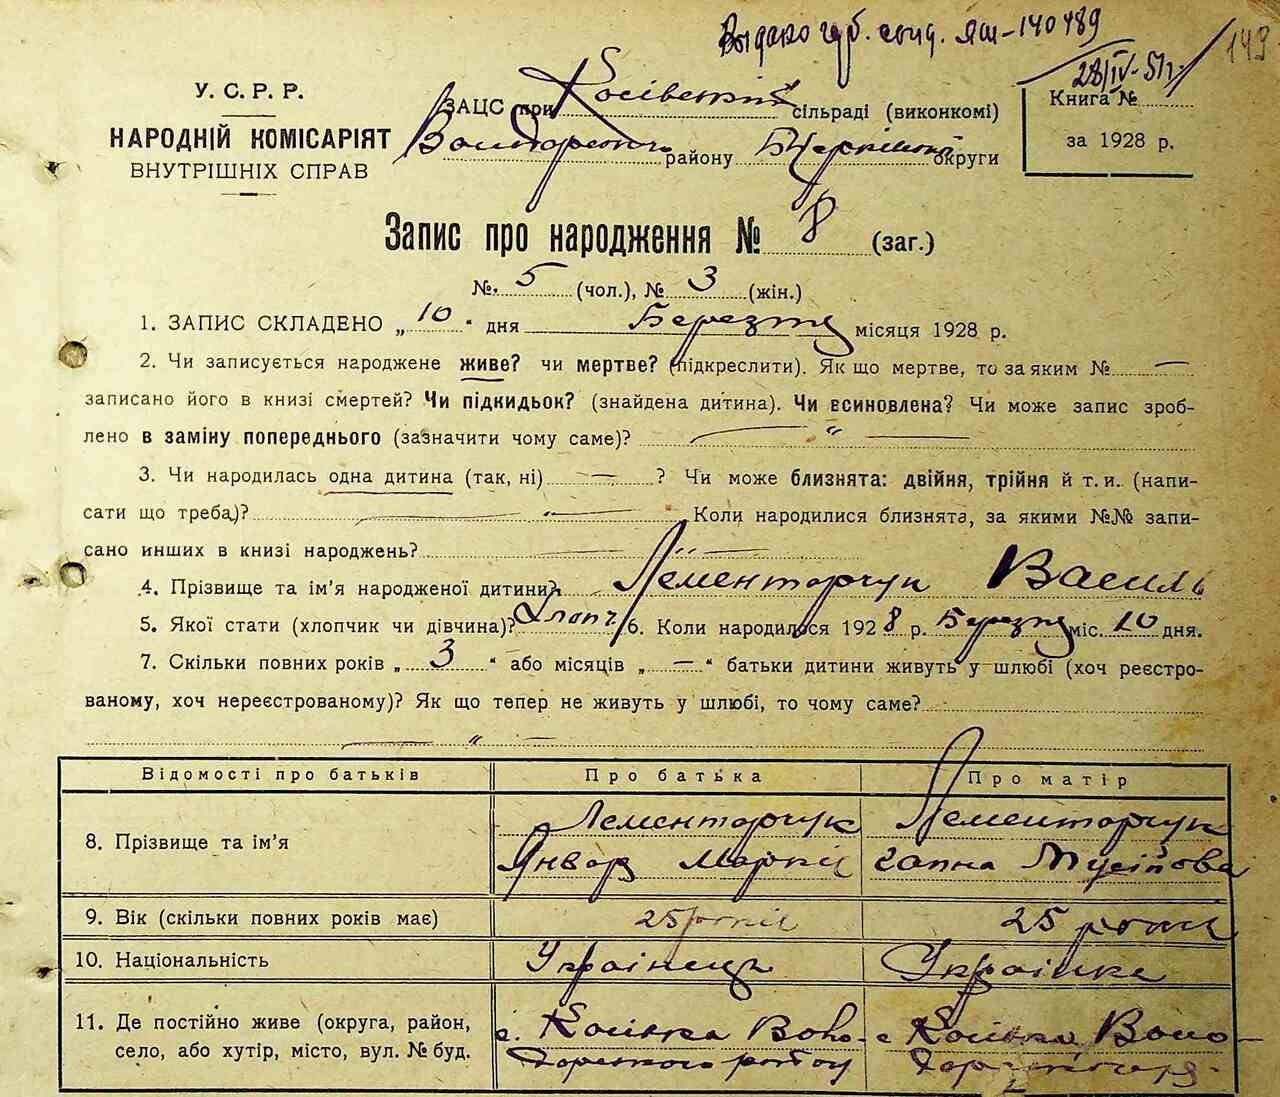 Выдано гув. свид. ЯШ-140489
28/IV-51г.
143
У. С. Р. Р.
НАРОДНІЙ КОМІСАРІЯТ
ВНУТРІШНІХ СПРАВ
ЗАЦС при Косівській сільраді (виконкомі)
району БЦерківської округи
Книга №
за 1928 р.
Запис про народження № 8 (заг.)
№ 5 (чол.), № 3 (жін.)
1. ЗАПИС СКЛАДЕНО „ 10 “ дня Березня місяця 1928 р.
2. Чи записується народжене живе? чи мертве? (підкреслити). Як що мертве, то за яким № —
записано його в книзі смертей? Чи підкидьок? (знайдена дитина). Чи всиновлена? Чи може запис зроб-
лено в заміну попереднього (зазначити чому саме)? — „ —
3. Чи народилась одна дитина (так, ні) — ? Чи може близнята: двійня, трійня й т. и. (напи-
сати що треба)? — „ — Коли народилися близнята, за якими №№ запи-
сано инших в книзі народжень? — „ —
4. Прізвище та ім’я народженої дитини? Лементарчук Василь
5. Якої стати (хлопчик чи дівчина)? Хлопч 6. Коли народилося 1928 р. Березня міс. 10 дня.
7. Скільки повних років „ 3 “ або місяців „ — “ батьки дитини живуть у шлюбі (хоч реєстро-
ваному, хоч нереєстрованому)? Як що тепер не живуть у шлюбі, то чому саме?
— „ —
Відомості про батьків Про батька Про матір
8. Прізвище та ім’я
Лементарчук
Лементарчук
9. Вік (скільки повних років має) 25 років 25 років
10. Національність Українець Українка
11. Де постійно живе (округа, район,
село, або хутір, місто, вул. № буд.
с. Косівка Воло-
дарського району
с Косівка Воло-